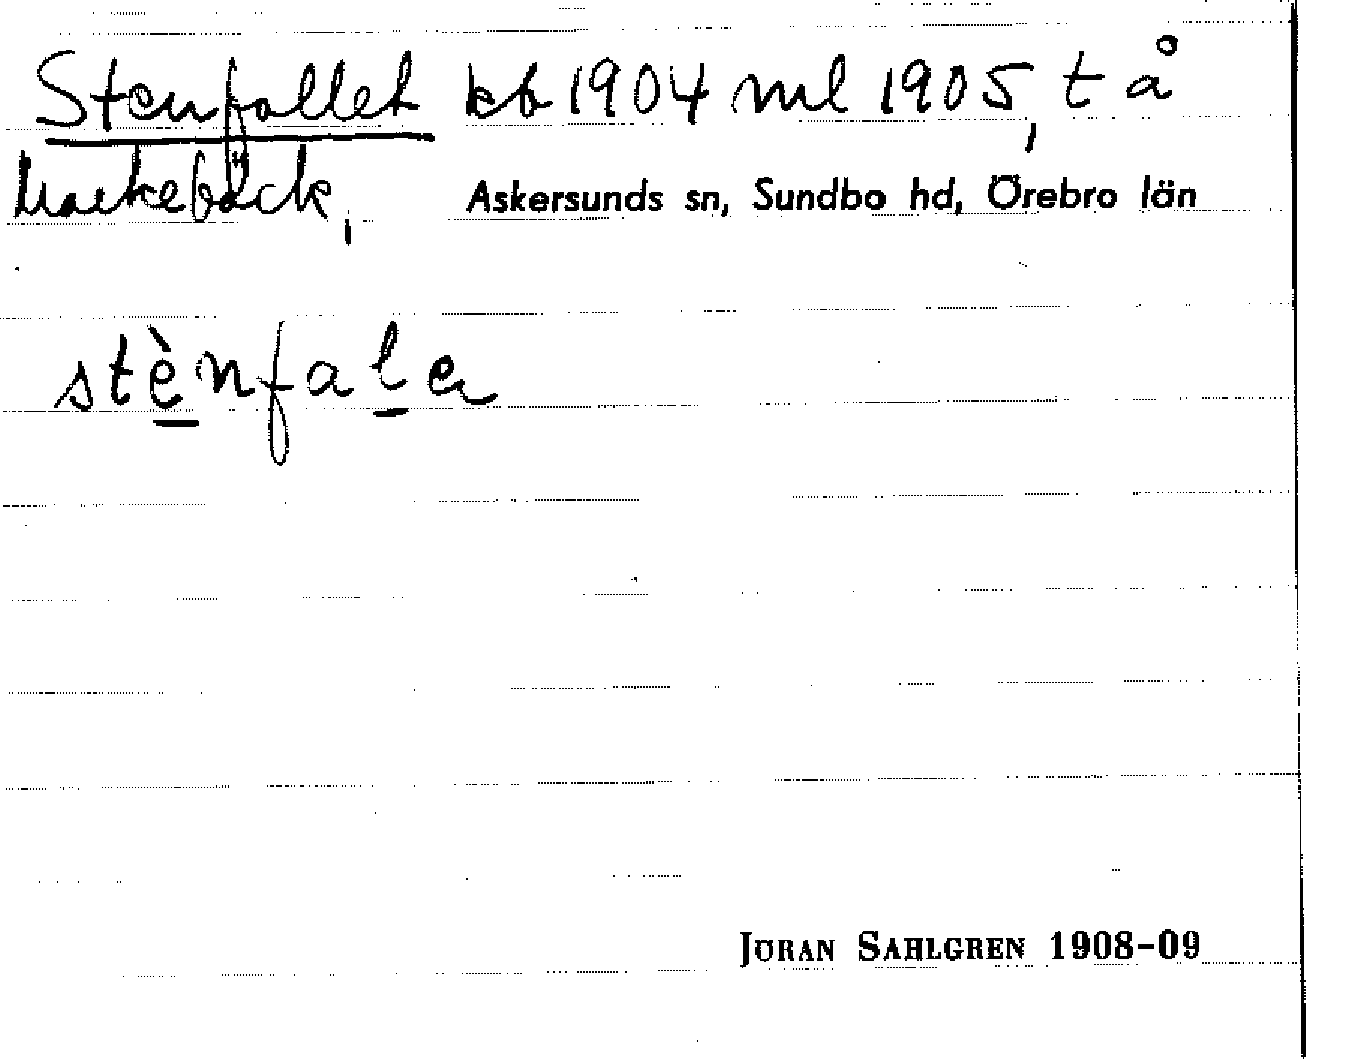 Stenfallet kb 1904 ml 1905, t å
Askersunds sn, Sundbo hd, Örebro län
stènfalə
JÖRAN SAHLGREN 1908–09